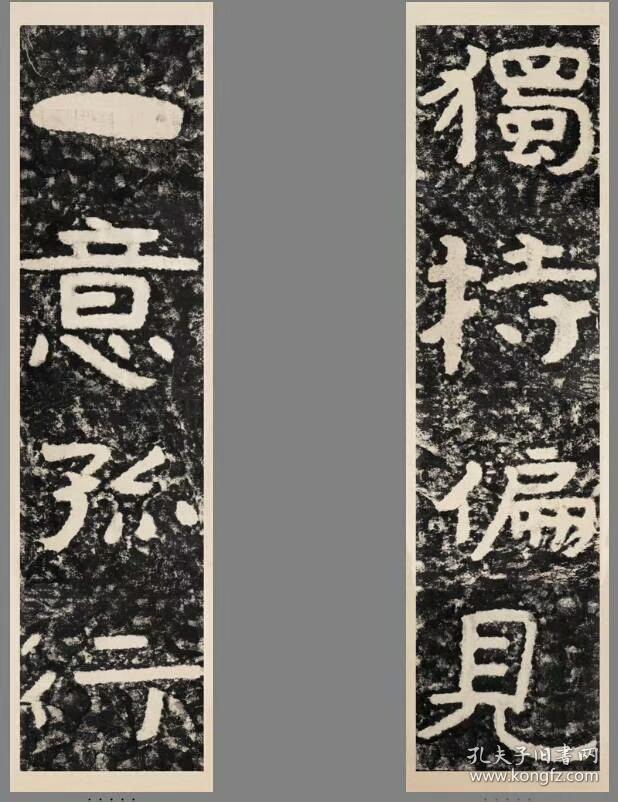 獨持偏見
一意孤行
孔夫子旧書网
www.kongfz.com